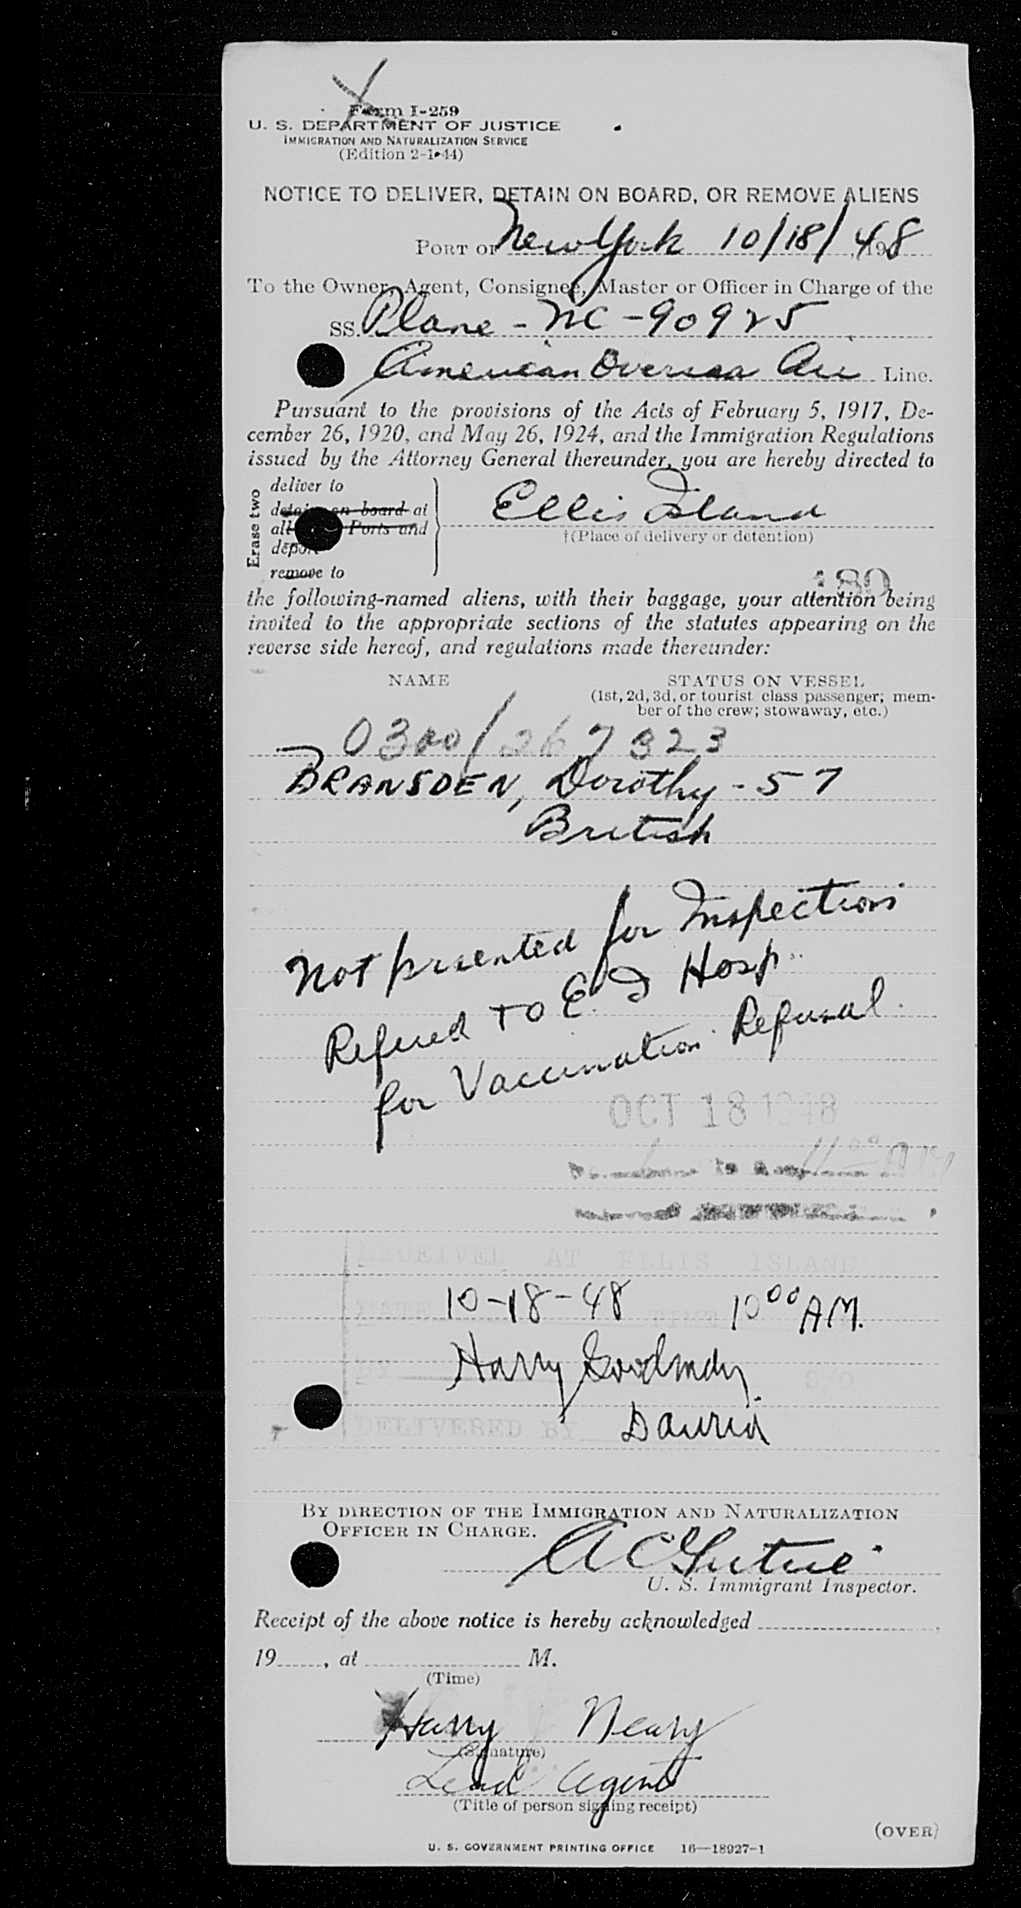 Form I-259
U. S. DEPARTMENT OF JUSTICE
IMMIGRATION AND NATURALIZATION SERVICE
(Edition 2-1-44)
NOTICE TO DELIVER, DETAIN ON BOARD, OR REMOVE ALIENS
PORT OF New York 10/18/48, 19
To the Owner, Agent, Consignee, Master or Officer in Charge of the
SS. Plane - NC - 90925
American Overseas Air Line.
Pursuant to the provisions of the Acts of February 5, 1917, De-
cember 26, 1920, and May 26, 1924, and the Immigration Regulations
issued by the Attorney General thereunder, you are hereby directed to
Erase two
deliver to
detain on board at
all Ports and
deport
remove to
Ellis Island
†(Place of delivery or detention)
180
the following-named aliens, with their baggage, your attention being
invited to the appropriate sections of the statutes appearing on the
reverse side hereof, and regulations made thereunder:
NAME STATUS ON VESSEL
(1st, 2d, 3d, or tourist class passenger; mem-
ber of the crew; stowaway, etc.)
0300/267323
BRANSDEN, Dorothy - 57
British
Not presented for Inspection
Refered TO E. I Hosp.
for Vaccination Refusal.
OCT 18 1948
11 00 AM
RECEIVED AT ELLIS ISLAND
DATE 10-18-48 TIME 10 00 AM.
BY Harry Goodman
DELIVERED BY
BY DIRECTION OF THE IMMIGRATION AND NATURALIZATION
OFFICER IN CHARGE.
U. S. Immigrant Inspector.
Receipt of the above notice is hereby acknowledged
19 , at M.
(Time)
Harry Neary
(Signature)
Lead Agent
(Title of person signing receipt)
(OVER)
U. S. GOVERNMENT PRINTING OFFICE 16—18927-1